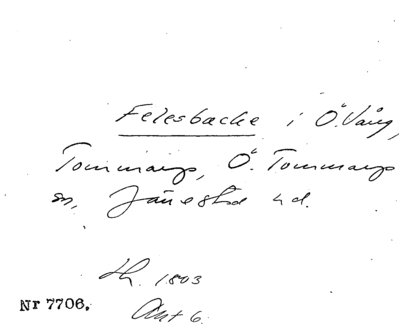 Felesbacke i Ö. Vång,
Tommarp, Ö. Tommarps
sn, Järrestad hd.
Lh. 1803
Akt 6.
Nr 7706.